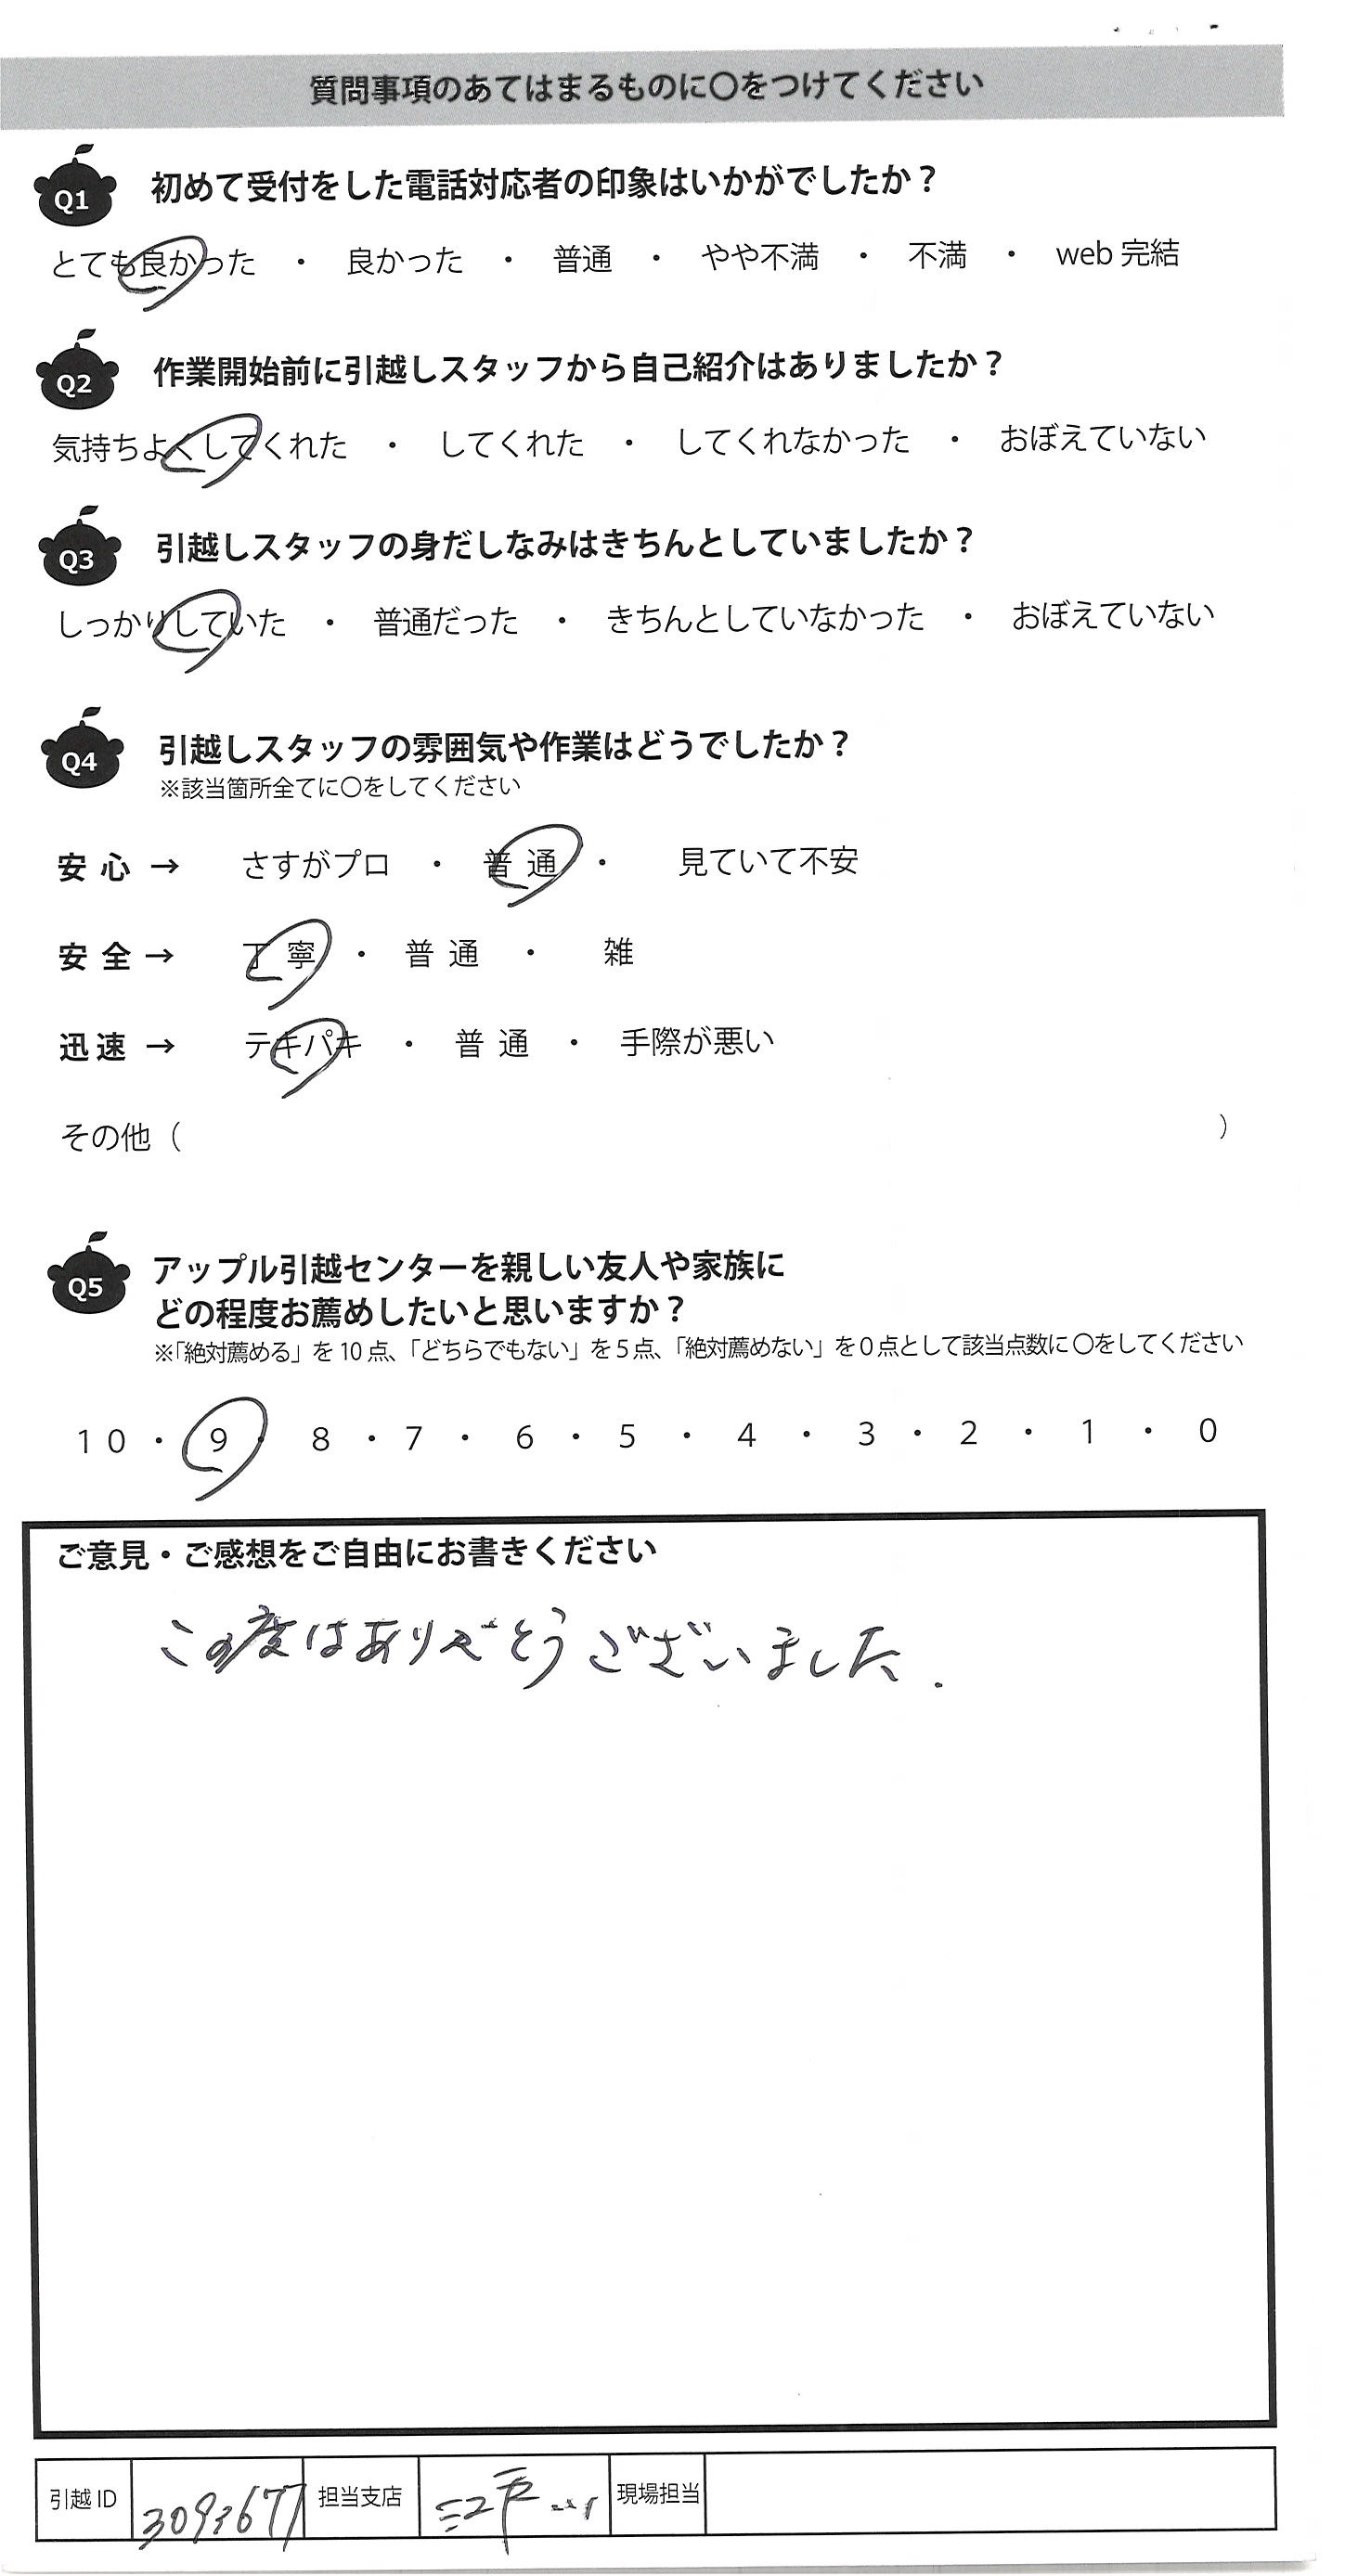 質問事項のあてはまるものに〇をつけてください
Q1 初めて受付をした電話対応者の印象はいかがでしたか？
とても良かった ・ 良かった ・ 普通 ・ やや不満 ・ 不満 ・ web 完結
Q2 作業開始前に引越しスタッフから自己紹介はありましたか？
気持ちよくしてくれた ・ してくれた ・ してくれなかった ・ おぼえていない
Q3 引越しスタッフの身だしなみはきちんとしていましたか？
しっかりしていた ・ 普通だった ・ きちんとしていなかった ・ おぼえていない
Q4 引越しスタッフの雰囲気や作業はどうでしたか？
※該当箇所全てに〇をしてください
安心 → さすがプロ ・ 普通 ・ 見ていて不安
安全 → 丁寧 ・ 普通 ・ 雑
迅速 → テキパキ ・ 普通 ・ 手際が悪い
その他（ ）
Q5 アップル引越センターを親しい友人や家族に
どの程度お薦めしたいと思いますか？
※「絶対薦める」を10点、「どちらでもない」を5点、「絶対薦めない」を0点として該当点数に〇をしてください
10 ・ 9 ・ 8 ・ 7 ・ 6 ・ 5 ・ 4 ・ 3 ・ 2 ・ 1 ・ 0
ご意見・ご感想をご自由にお書きください
この度はありがとうございました.
引越ID 担当支店 現場担当